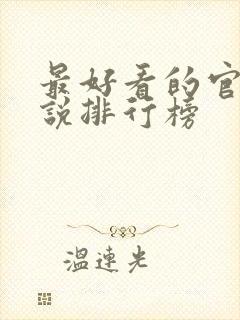 最好看的官
說排行榜
溫連光